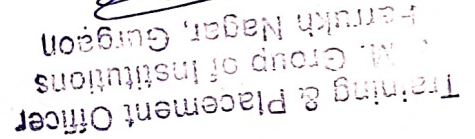 Training & Placement Officer
M. Group of Institutions
Farrukh Nagar, Gurgaon